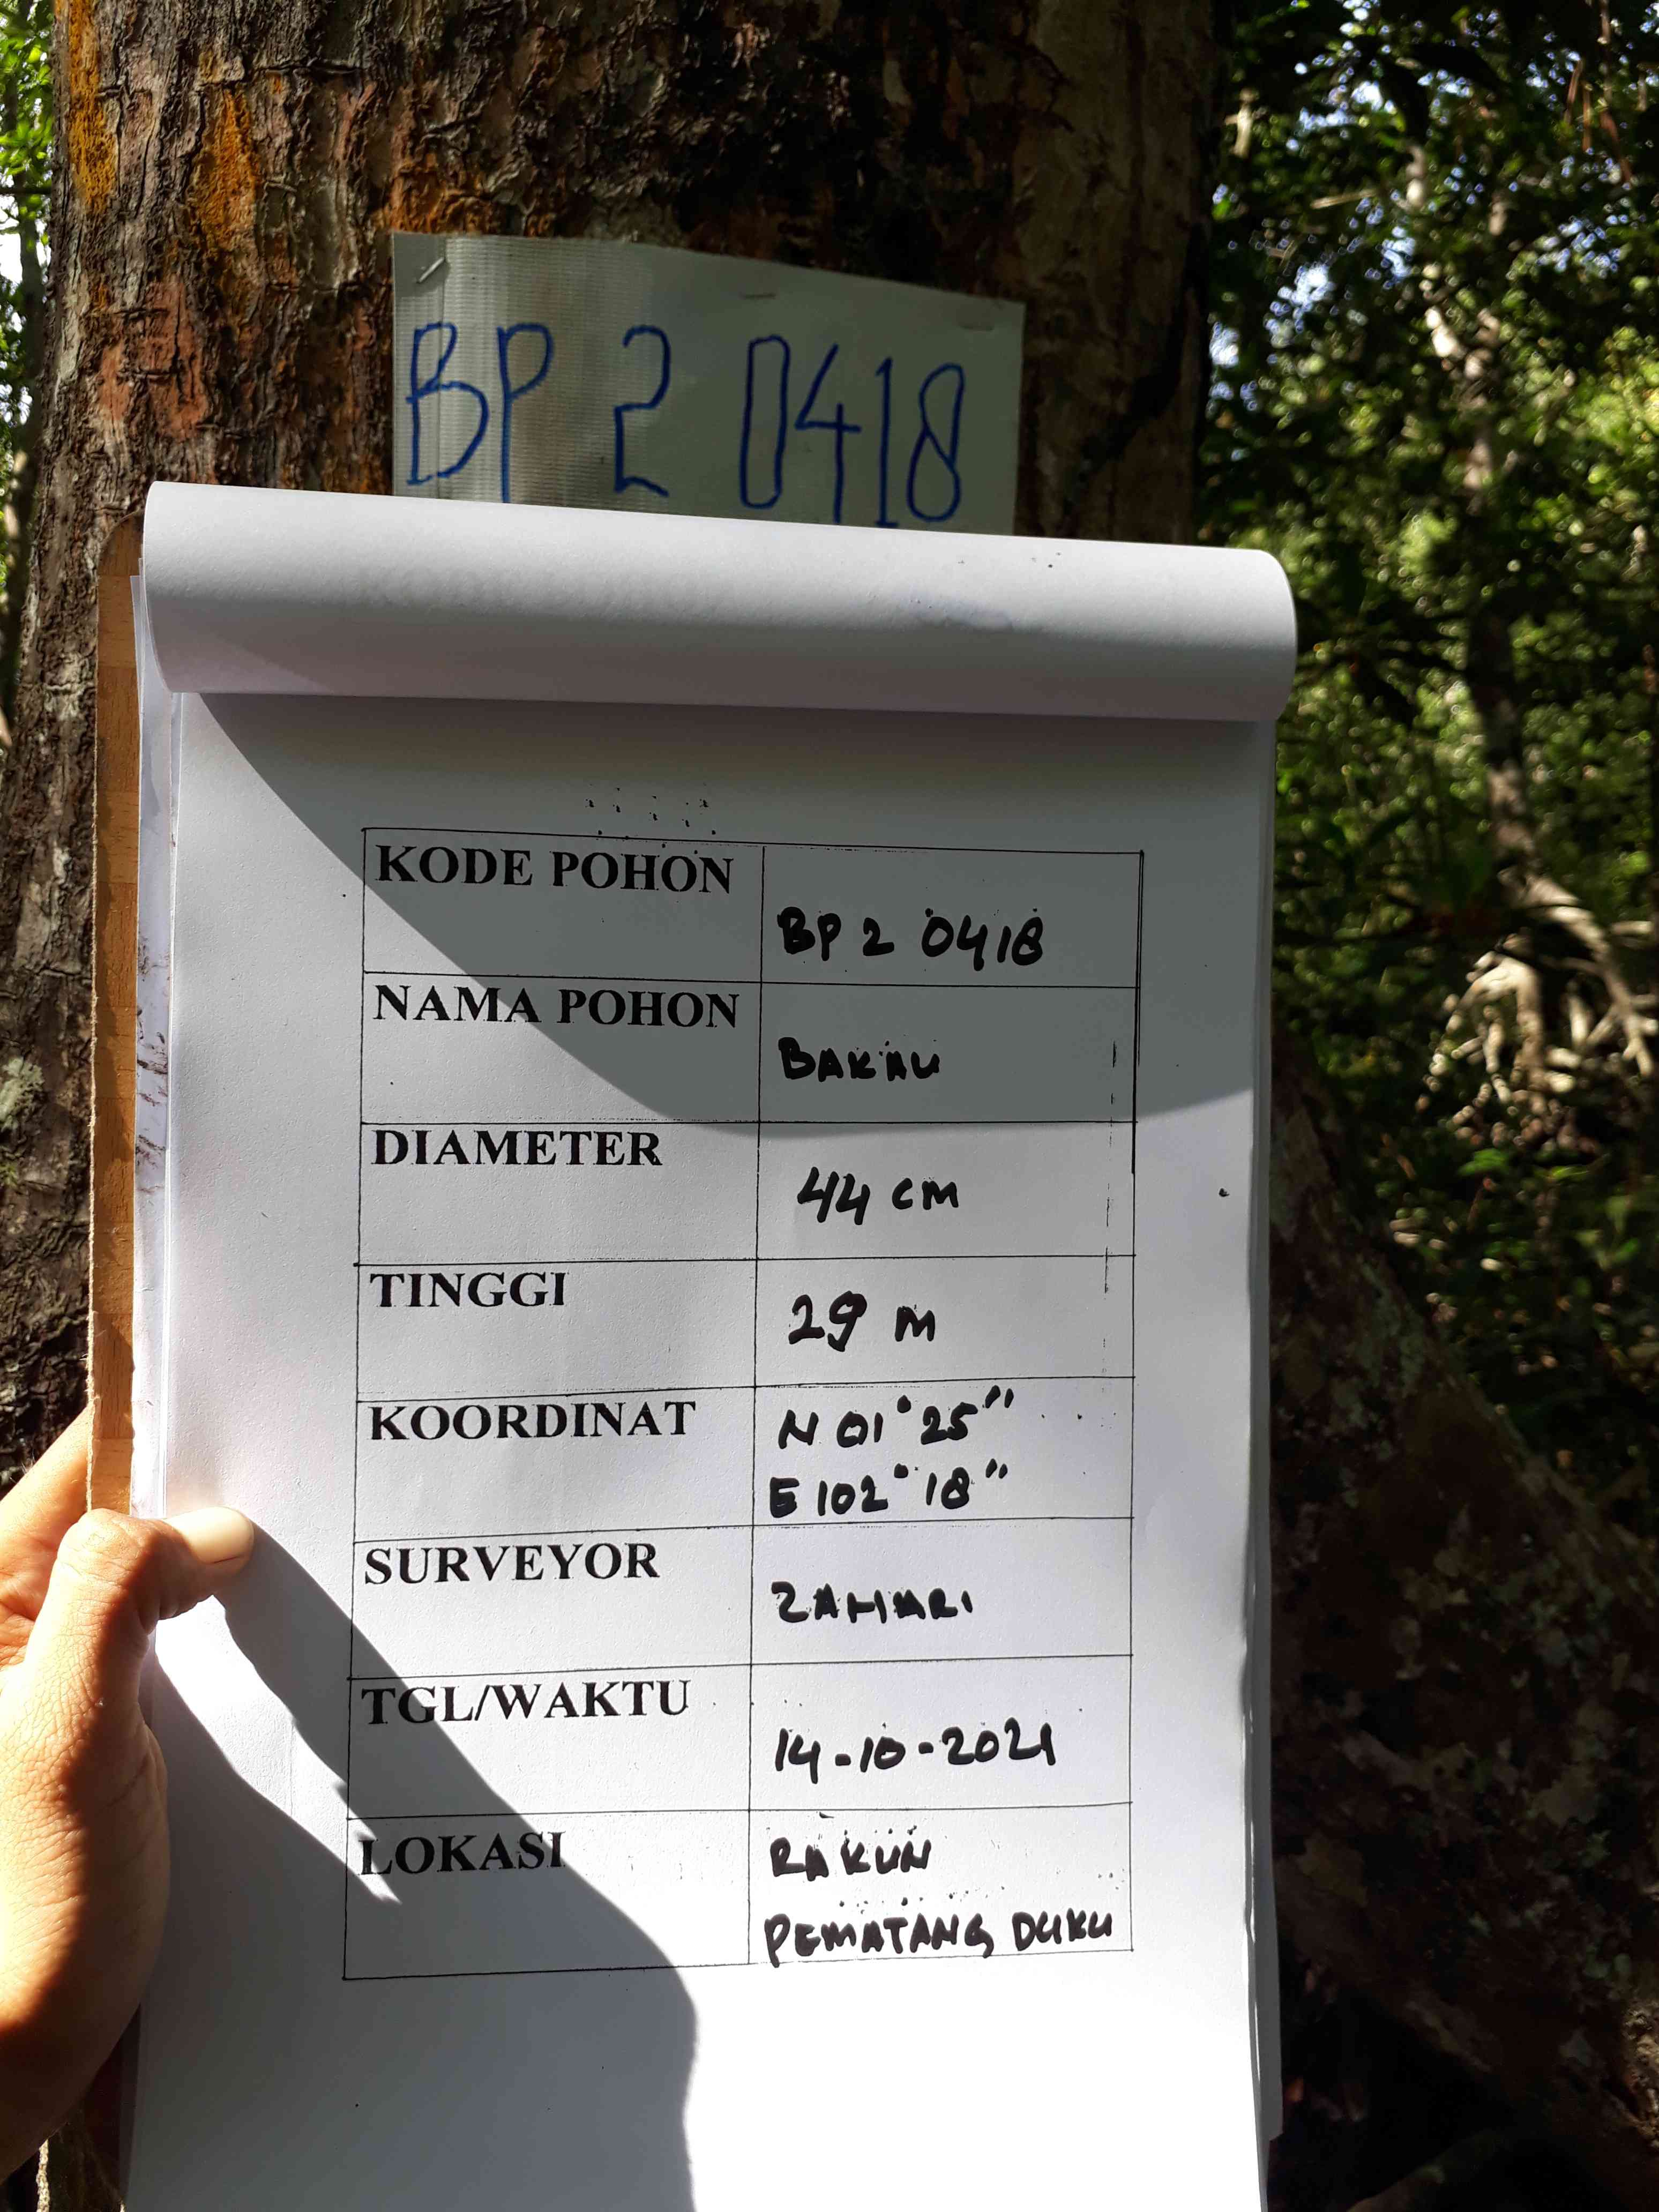 BP 2 0418
KODE POHON
BP 2 0418
NAMA POHON
BAKAU
DIAMETER
44 CM
TINGGI
29 M
KOORDINAT
N 01° 25"
E 102° 18"
SURVEYOR
ZAHARI
TGL/WAKTU
14-10-2021
LOKASI
RAKUN
PEMATANG DUKU